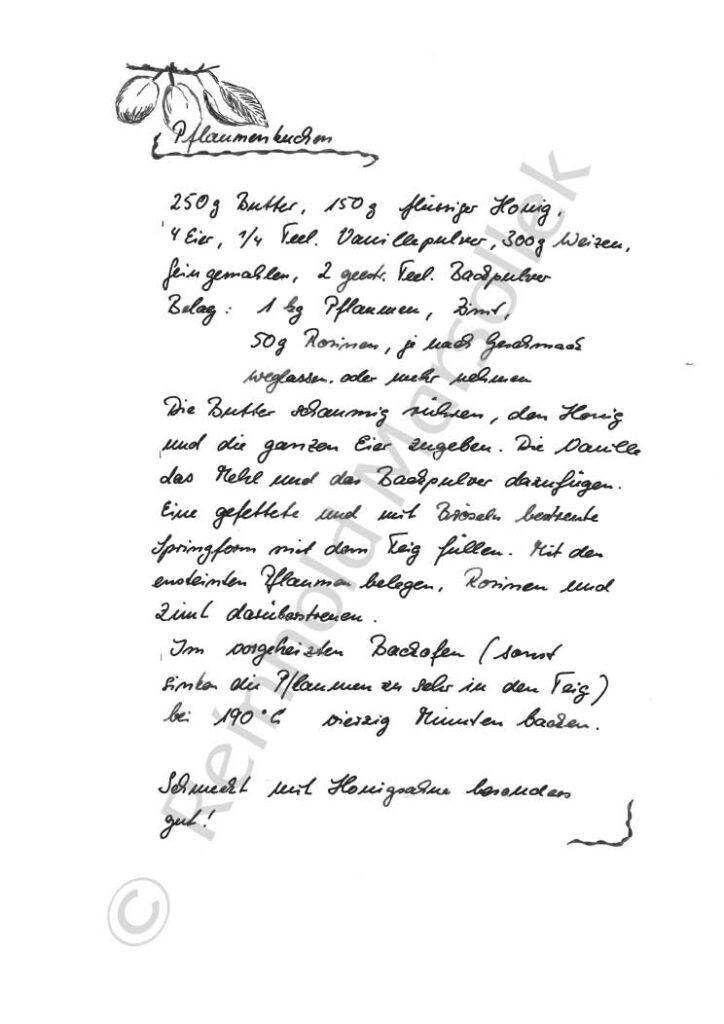 Pflaumenkuchen
250g Butter, 150g flüssiger Honig,
4 Eier, 1/4 Teel. Vanillepulver, 300g Weizen,
fein gemahlen, 2 gestr. Teel. Backpulver
Belag: 1 kg Pflaumen, Zimt,
50g Rosinen, je nach Geschmack
weglassen oder mehr nehmen
Die Butter schaumig rühren, den Honig
und die ganzen Eier zugeben. Die Vanille
das Mehl und das Backpulver dazufügen.
Eine gefettete und mit Bröseln bestreute
Springform mit dem Teig füllen. Mit den
entsteinten Pflaumen belegen, Rosinen und
Zimt darüberstreuen.
Im vorgeheizten Backofen (sonst
sinken die Pflaumen zu sehr in den Teig)
bei 190°C vierzig Minuten backen.
Schmeckt mit Honigsahne besonders
gut!
© Reinhold Marsollek